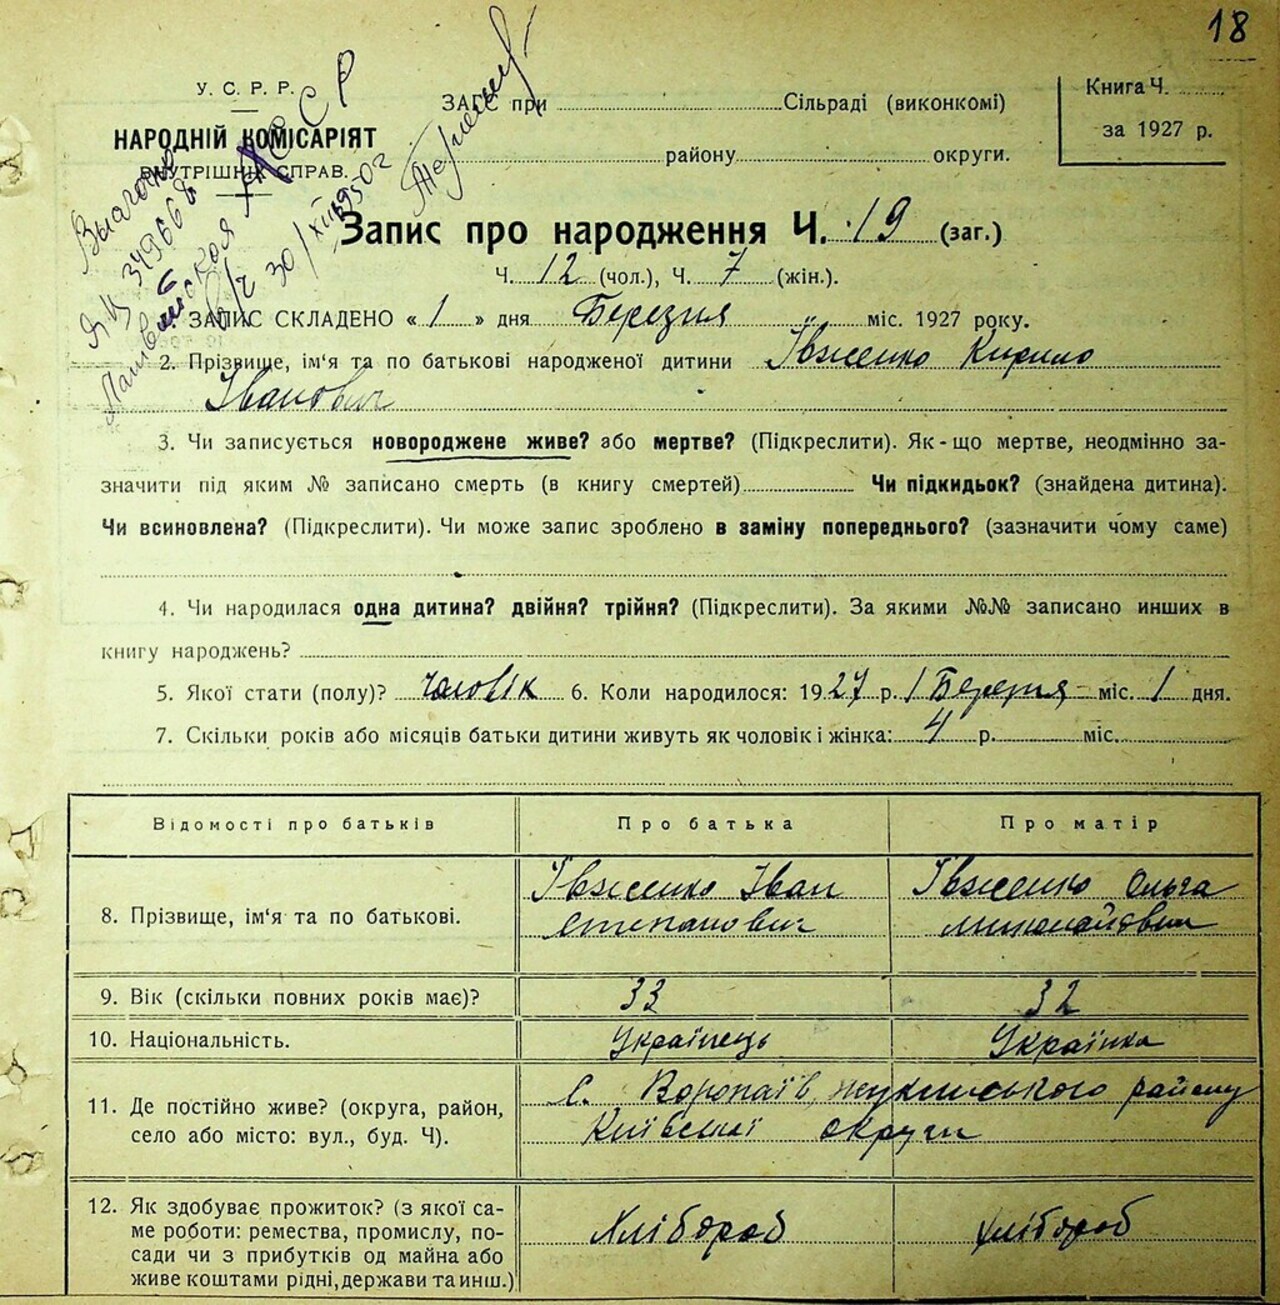 18
У. С. Р. Р.
НАРОДНІЙ КОМІСАРІЯТ
ВНУТРІШНІХ СПРАВ.
ЗАГС при Сільраді (виконкомі)
району округи.
Книга Ч.
за 1927 р.
ЯЦ 349668
30/XII 1950 г
Запис про народження Ч. 19 (заг.)
Ч. 12 (чол.), Ч. 7 (жін.).
1. ЗАПИС СКЛАДЕНО « 1 » дня Березня міс. 1927 року.
2. Прізвище, ім'я та по батькові народженої дитини Івженко Кирило
Іванович
3. Чи записується новороджене живе? або мертве? (Підкреслити). Як-що мертве, неодмінно за-
значити під яким № записано смерть (в книгу смертей) Чи підкидьок? (знайдена дитина).
Чи всиновлена? (Підкреслити). Чи може запис зроблено в заміну попереднього? (зазначити чому саме)
4. Чи народилася одна дитина? двійня? трійня? (Підкреслити). За якими №№ записано инших в
книгу народжень?
5. Якої стати (полу)? чоловік 6. Коли народилося: 1927 р. 1 Березня міс. 1 дня.
7. Скільки років або місяців батьки дитини живуть як чоловік і жінка: 4 р. міс.
Відомості про батьків Про батька Про матір
8. Прізвище, ім'я та по батькові.
Івженко Іван
степанович
Івженко Ольга
9. Вік (скільки повних років має)? 33 32
10. Національність. Українець Українка
11. Де постійно живе? (округа, район,
село або місто: вул., буд. Ч).
с. Воропаїв, жукинського району
Київської округи
12. Як здобуває прожиток? (з якої са-
ме роботи: ремества, промислу, по-
сади чи з прибутків од майна або
живе коштами рідні, держави та инш.)
Хлібороб хлібороб